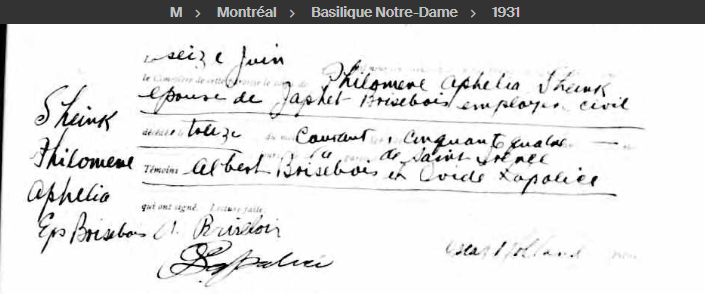 M > Montréal > Basilique Notre-Dame > 1931
Le seize Juin
le Cimetière de cette paroisse le corps de Philomene Aphelia Sheink
épouse de Japhet Brisebois employer civil
décédée le treize du mois Courant, cinquante quatre
de Saint Irénée
Témoins Albert Brisebois et Ovide Lapalice
qui ont signé. Lecture faite.
Sheink
Philomene
Aphelia
Eps Brisebois
A. Brisebois
Oscar Holland